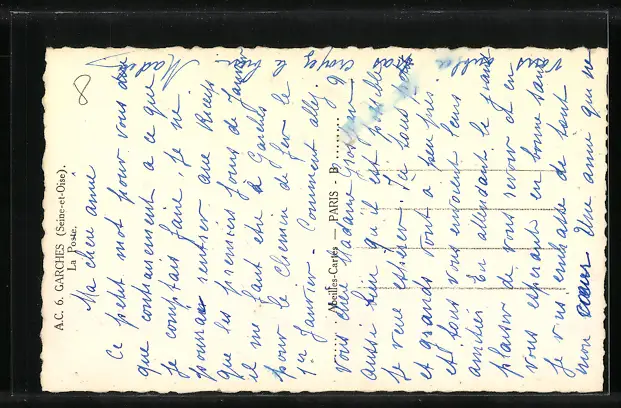 A.C. 6. GARCHES (Seine-et-Oise).
La Poste.
Abeilles-Cartes — PARIS - B
Ma chère amie
Ce petit mot pour vous dire
que contrairement à ce que
je comptais faire, je ne
pourrai rentrer aux
que les premiers jours de Janvier
il me faut être à Garches
pour le Chemin de fer le
1er Janvier. Comment allez
vous chère Madame
aussi bien qu'il est possible
je veux espérer. Ici tous petits
et grands vont à peu près
et tous vous envoient leurs
amitiés En attendant le grand
plaisir de vous revoir et en
vous espérant en bonne santé
je vous embrasse de tout
mon cœur Une amie qui ne
vous oublie
pas croyez le bien
Madeg